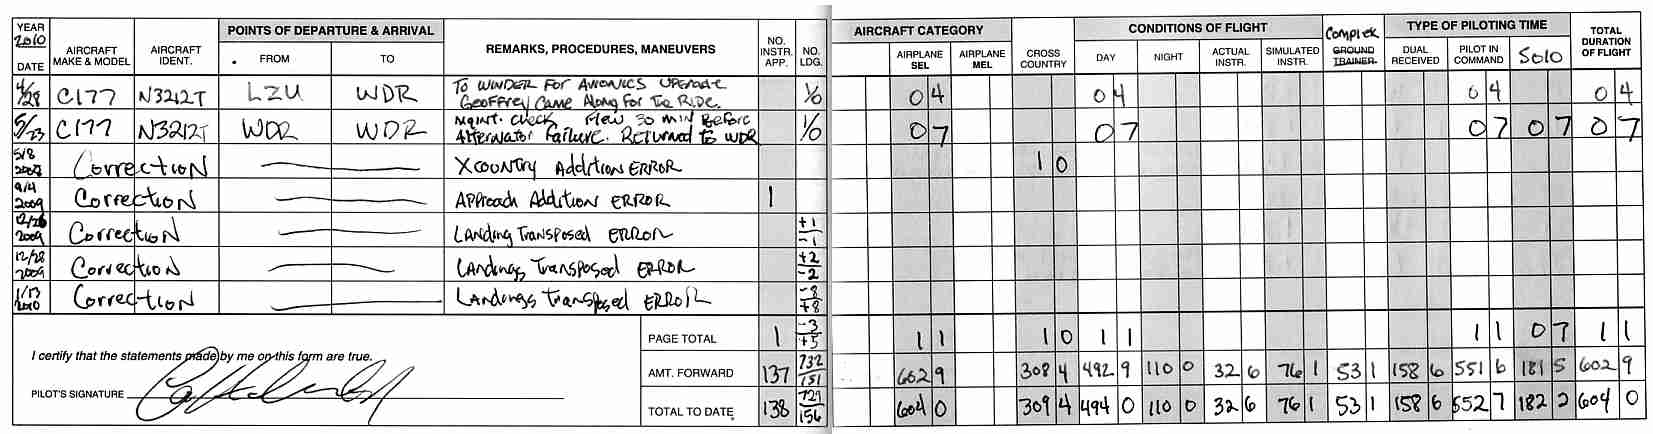 YEAR 2010 POINTS OF DEPARTURE & ARRIVAL NO. INSTR. APP. NO. LDG. AIRCRAFT CATEGORY CONDITIONS OF FLIGHT Complex TYPE OF PILOTING TIME TOTAL DURATION OF FLIGHT
DATE AIRCRAFT MAKE & MODEL AIRCRAFT IDENT. FROM TO REMARKS, PROCEDURES, MANEUVERS AIRPLANE SEL AIRPLANE MEL CROSS COUNTRY DAY NIGHT ACTUAL INSTR. SIMULATED INSTR. GROUND TRAINER DUAL RECEIVED PILOT IN COMMAND Solo
4/28 C177 N3212T LZU WDR To WINDER For AVIONICS UPGRADE 1/0 0 4 0 4 0 4 0 4
Geoffrey Came Along For The Ride.
5/23 C177 N3212T WDR WDR Maint. Check Flew 30 min Before 1/0 0 7 0 7 0 7 0 7 0 7
Alternator Failure. Returned to WDR
5/8 Correction Xcountry Addition ERROR 1 0
9/4 2009 Correction Approach Addition ERROR 1
12/26 2009 Correction Landing Transposed ERROR +1/-1
12/28 2009 Correction Landings Transposed ERROR +2/-2
1/17 2010 Correction Landings Transposed ERROR -8/+8
I certify that the statements made by me on this form are true.
PILOT'S SIGNATURE
PAGE TOTAL 1 -3/+5 1 1 1 0 1 1 1 1 0 7 1 1
AMT. FORWARD 137 732/151 602 9 308 4 492 9 110 0 32 6 76 1 53 1 158 6 551 6 181 5 602 9
TOTAL TO DATE 138 729/156 604 0 309 4 494 0 110 0 32 6 76 1 53 1 158 6 552 7 182 2 604 0